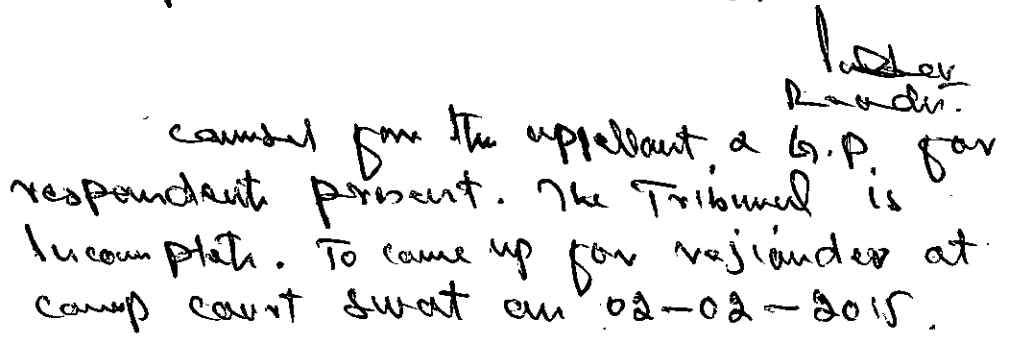 Reader.
counsel for the appellant, a G.P. for
respondents present. The Tribunal is
Incomplete. To come up for rejoinder at
camp court Swat on 02-02-2015.